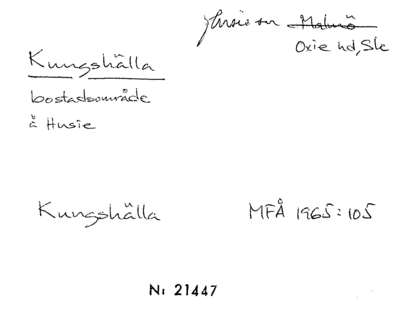 Husie sn Malmö
Oxie hd, Sk
Kungshälla
bostadsområde
å Husie
Kungshälla MFÅ 1965:105
Nr 21447